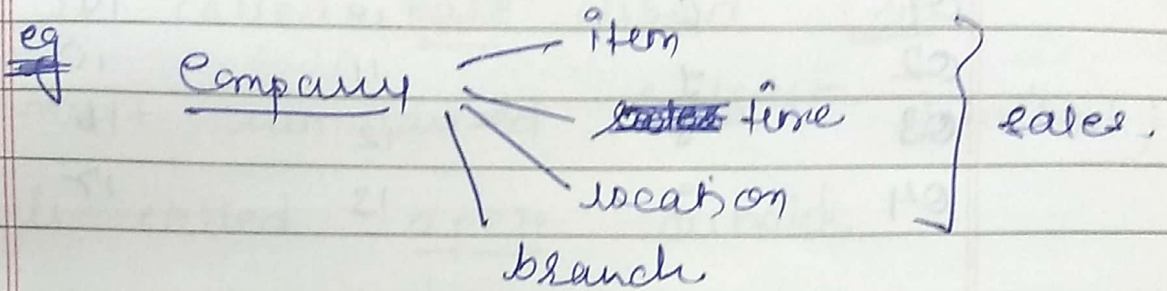 eg
Company
item
time
location
branch
sales.